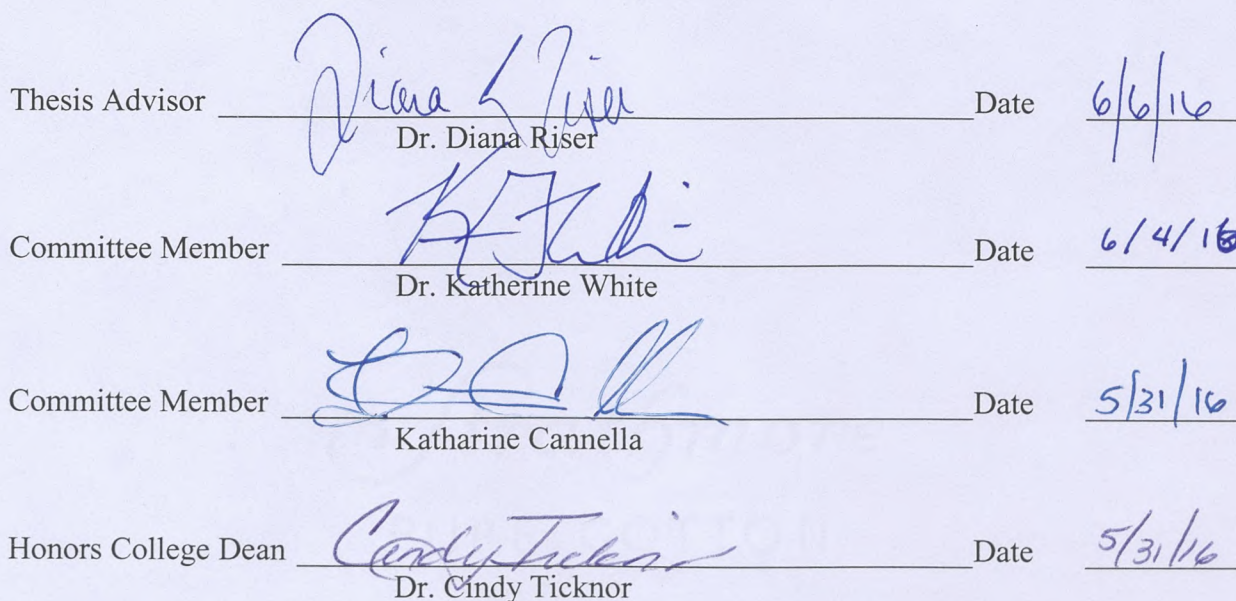 Thesis Advisor Diana L Riser Date 6/6/16
Dr. Diana Riser
Committee Member Date 6/4/16
Dr. Katherine White
Committee Member Date 5/31/16
Katharine Cannella
Honors College Dean Cindy Ticknor Date 5/31/16
Dr. Cindy Ticknor